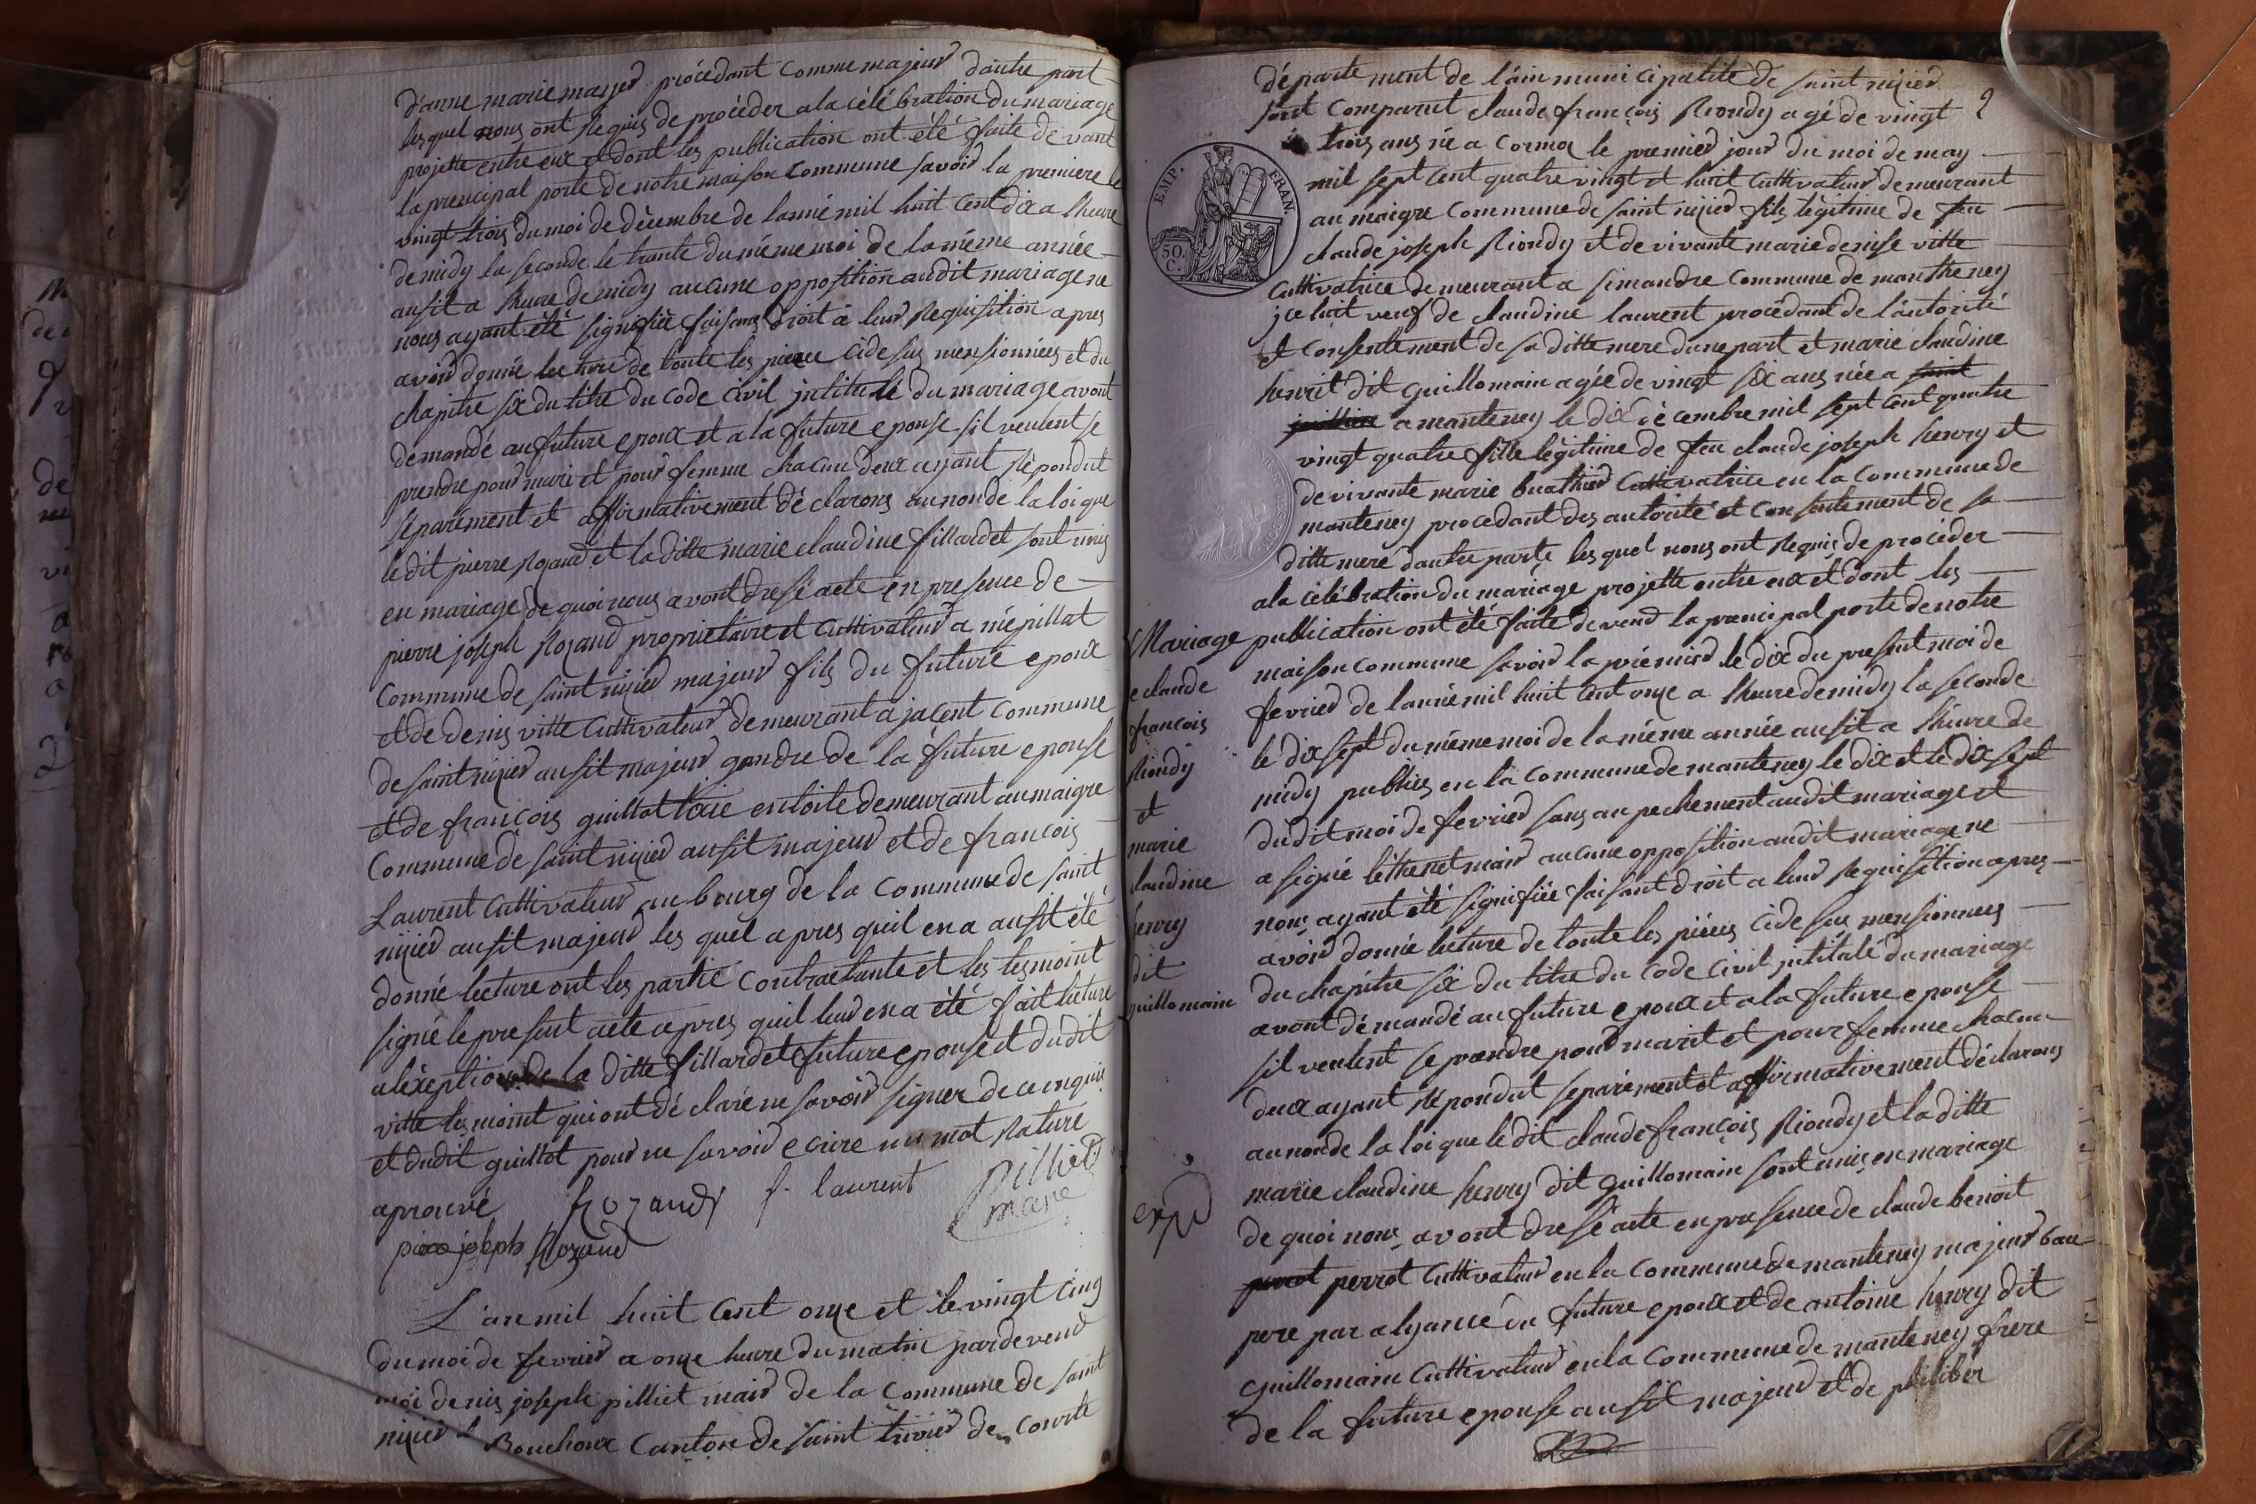 d'anne marie mayer procédant comme majeur d'autre part
lesquel nous ont Requis de procéder a la célébration du mariage
projette entre eux et dont les publication ont été faite devant
la principal porte de notre maison commune savoir la premiere le
vingt trois du moi de décembre de lannée mil huit cent dix a lheure
de midy la seconde le trante du méme moi de la méme année
ausit a lheure de midy aucune opposition audit mariage ne
nous ayant été signifiée faisant droit a leur Requisition apres
avoir donné lecture de toute les piece cidesus mensionnées et du
chapitre six du titre du code civil jntitulé du mariage avont
demandé au future epoux et a la future epouse sil veulent se
prendre pour mari et pour femme chacun deux ayant Répondut
séparément et affirmativement déclarons au nonde la loi que
ledit pierre Rozand et la ditte marie claudine fillardet sont unis
en mariage de quoi nous avont dressé acte en presence de
pierre joseph Rozand proprietaire et cuttivateur a népillat
commune de saint nizier majeur fils du future epoux
et de denis vitte cuttivateur demeurant a jacent commune
de saint nizier ausit majeur gendre de la future epouse
et de françois guillot toxie entoile demeurant aumaigre
commune de saint nizier ausit majeur et de francois
Laurent cuttivateur au bourg de la commune de saint
nizier ausit majeur les quel apres quil en a ausit été
donné lecture ont les partie contractante et les tesmoint
signé le present acte apres quil leur en a été fait lecture
a léxeption de la ditte fillardet future epouse et dudit
vitte tesmoint qui ont déclaré ne savoir signer de ce enquis
et dudit guillot pour ne savoir ecrire un mot Rature
aprouvé Rozand f. laurent Pilliet
maire
pierre joseph Rozand
L'an mil huit cent onze et le vingt cinq
du moi de fevrier a onze heure du matin pardevend
moi denis joseph pilliet mair de la commune de saint
nizier l Bouchoux canton de saint trivier de courte
département de l'ain municipalité de saint nizier
2
sont comparut claude françois Riondy agé de vingt
trois ans né a cormoz le premier jour du moi de may
mil sept cent quatre vingt et huit cuttivateur demeurant
au maigre commune de saint nizier fils légitime de feu
claude joseph Riondy et de vivante marie denise vitte
EMP. FRAN.
50. C.
cuttivatrice demeurant a simandre commune de mantheney
jce luit veuf de claudine laurent procédant de l'autorité
et consentement de sa ditte mere dune part et marie claudine
henrit dit guillomain agée de vingt six ans née a saint
a manteney le dix décembre mil sept cent quatre
vingt quatre fille légitime de feu claude joseph henry et
de vivante marie buathier cuttivatrice en la commune de
manteney procedant des autorité et consentement de sa
ditte mere dautre parte lesquel nous ont Requis de procéder
ala célébration du mariage projette entre eux et dont les
publication ont été faite devend la principal porte de notre
maison commune savoir la prémier le dix du present moi de
fevrier de lannée mil huit cent onze a lheure de midy la seconde
le dix sept du méme moi de la méme année ausit a lheure de
midy publies en la commune de manteney le dix et le dix sept
dudit moi de fevrier sans aupechement audit mariage et
a signé léthenet mair aucune opposition audit mariage ne
nous ayant été signifiée faisant droit a leur Requisition apres
avoir donnée lecture de toute les piéces cidesus mensionnees
du chapitre six du titre du code civil jntitulé du mariage
avont démandé au future epoux et a la future epouse
sil veulent se prendre pour marit et pour femme chacun
deux ayant Répondut separément et affirmativement déclarons
au nonde la loi que ledit claude françois Riondy et la ditte
marie claudine henry dit guillomain sont unis en mariage
de quoi nous avont dressé acte en presence de claude benoit
perrot perrot cuttivateur en la commune de manteney majeur bau
pere par alyance du future epoux et de antoine henry dit
guillomain cuttivateur en la commune de manteney frere
de la future epouse ausit majeur et de philiber
Mariage
claude
françois
Riondy
et
marie
claudine
henry
dit
guillomain
expd